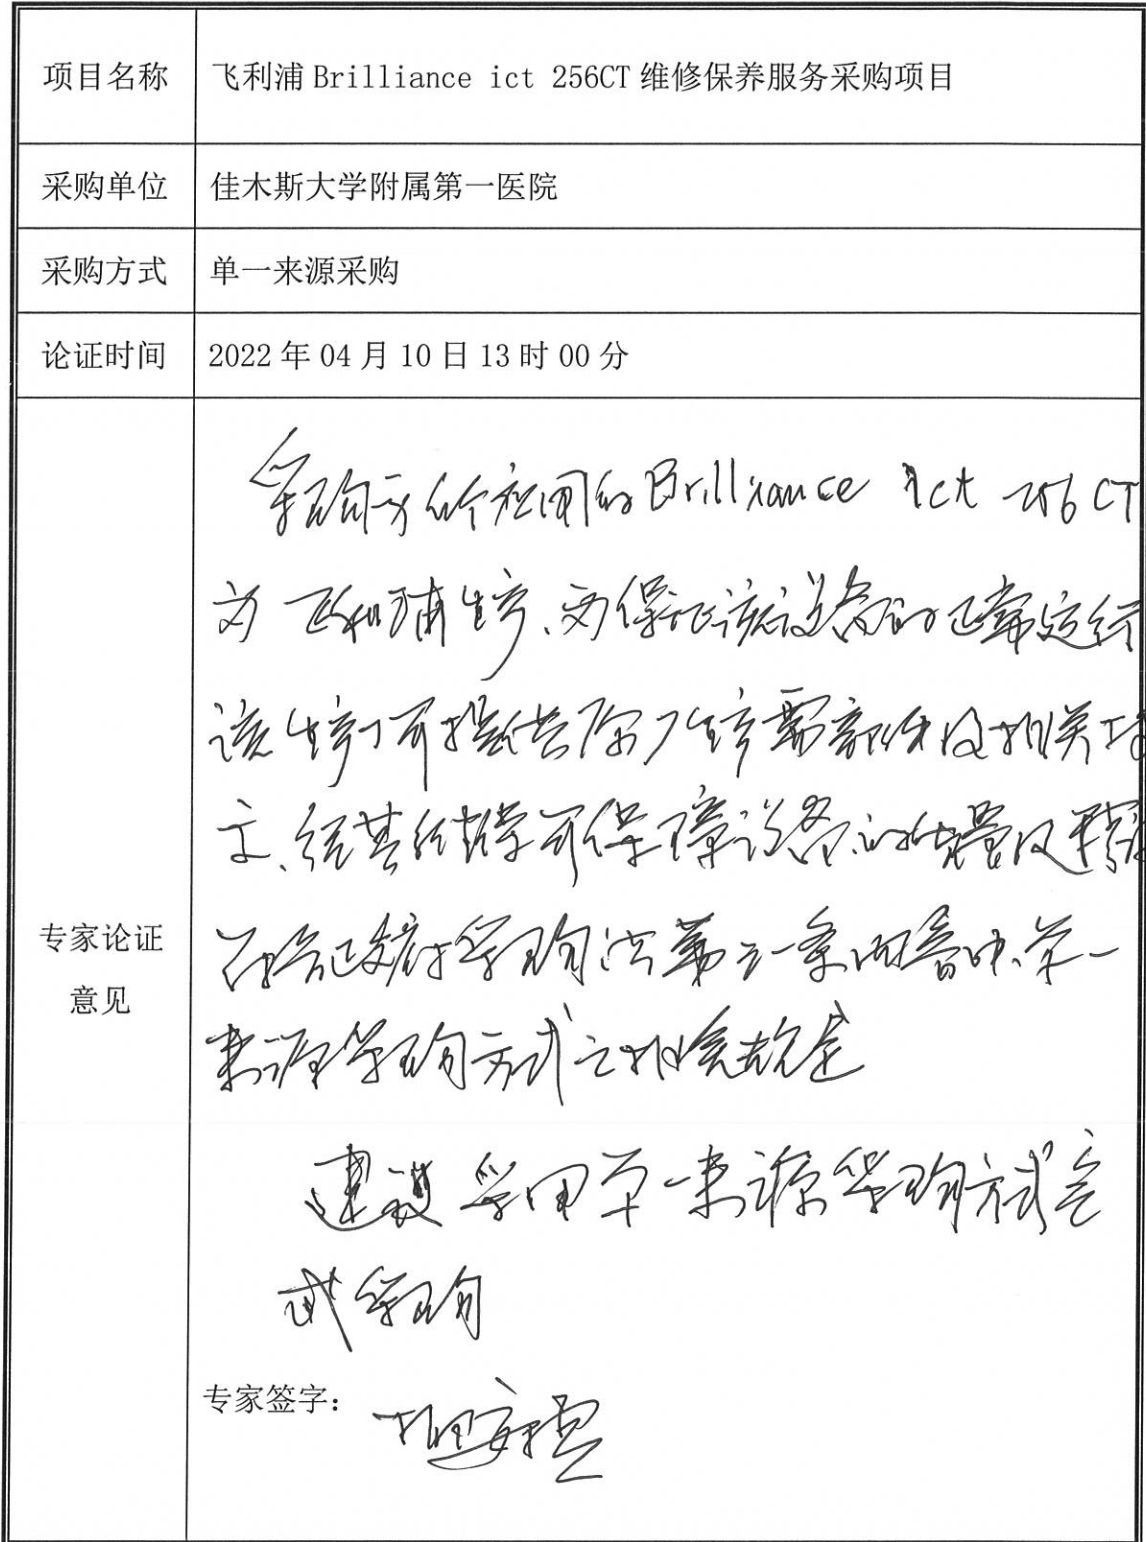 项目名称 飞利浦 Brilliance ict 256CT 维修保养服务采购项目
采购单位 佳木斯大学附属第一医院
采购方式 单一来源采购
论证时间 2022 年 04 月 10 日 13 时 00 分
专家论证
意见
采购方 应用的 Brilliance ict 256 CT
为飞利浦生产、为保证该设备的正常运行
该生产厂可提供原厂生产 部件及相关
可保障设备的质量及
符合政府采购法第三一条内容中、单一
来源采购方式之
建议采用单一来源采购方式完
成采购
专家签字: